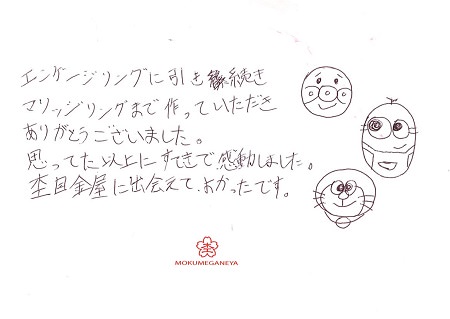 エンゲージリングに引き続き
マリッジリングまで作っていただき
ありがとうございました。
思ってた以上にすてきで感動しました。
杢目金屋に出会えて、よかったです。
杢
MOKUMEGANEYA